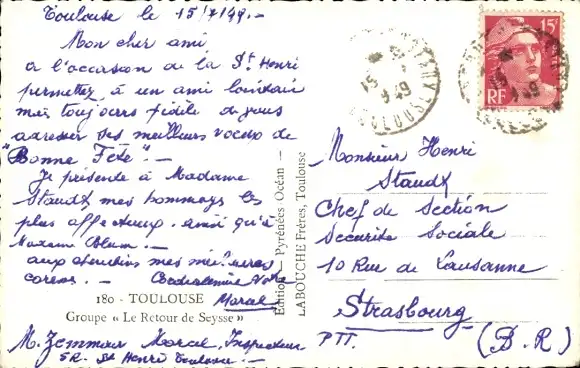 Toulouse le 15/7/49.-
Mon cher ami
a l'occasion de la St Henri
permettez à un ami lointain
mais toujours fidèle de vous
adresser ses meilleurs voeux de
"Bonne Fête".-
Je présente à Madame
Staudt mes hommages les
plus affectueux. ainsi qu'à
Madame Blum.-
aux
Cordialement Votre
Marcel
180 - TOULOUSE
Groupe « Le Retour de Seysse »
M. Zemmour Marcel, Inspecteur
5R. St Henri Toulouse.-
Edition - Pyrénées-Océan -
LABOUCHE Frères, Toulouse
15F
RF
Monsieur Henri
Staudt
Chef de Section
Securite Sociale
10 Rue de Lausanne
Strasbourg
PTT.
(B.R)